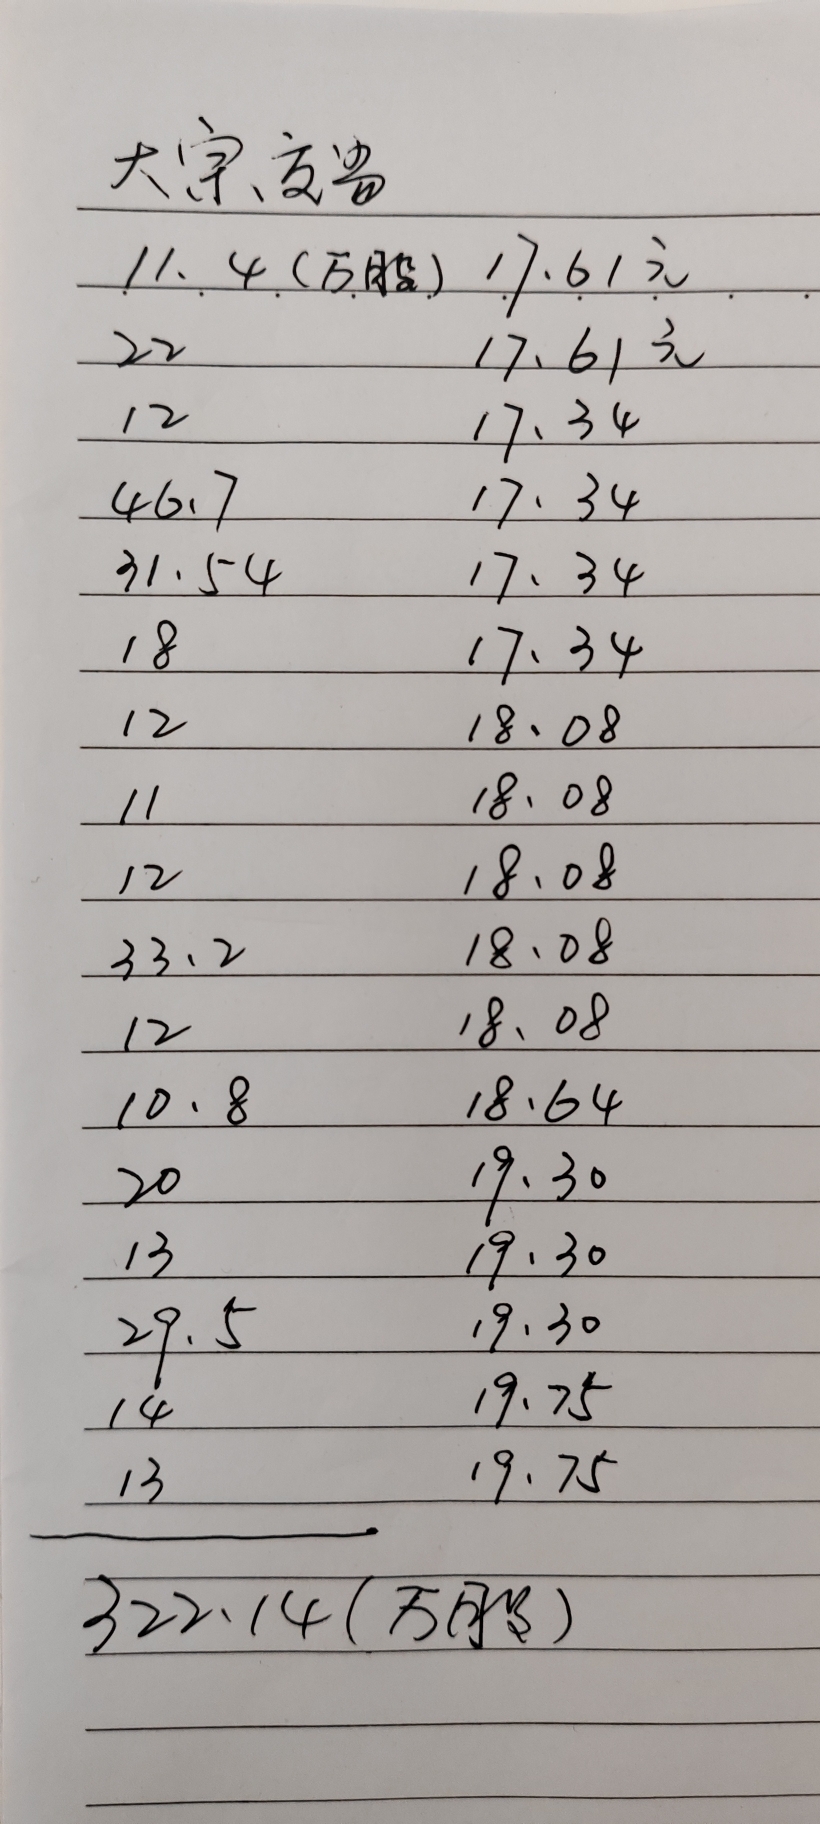 大宗交易
11.4(万股) 17.61元
22 17.61元
12 17.34
46.7 17.34
31.54 17.34
18 17.34
12 18.08
11 18.08
12 18.08
33.2 18.08
12 18.08
10.8 18.64
20 19.30
13 19.30
29.5 19.30
14 19.75
13 19.75
322.14(万股)